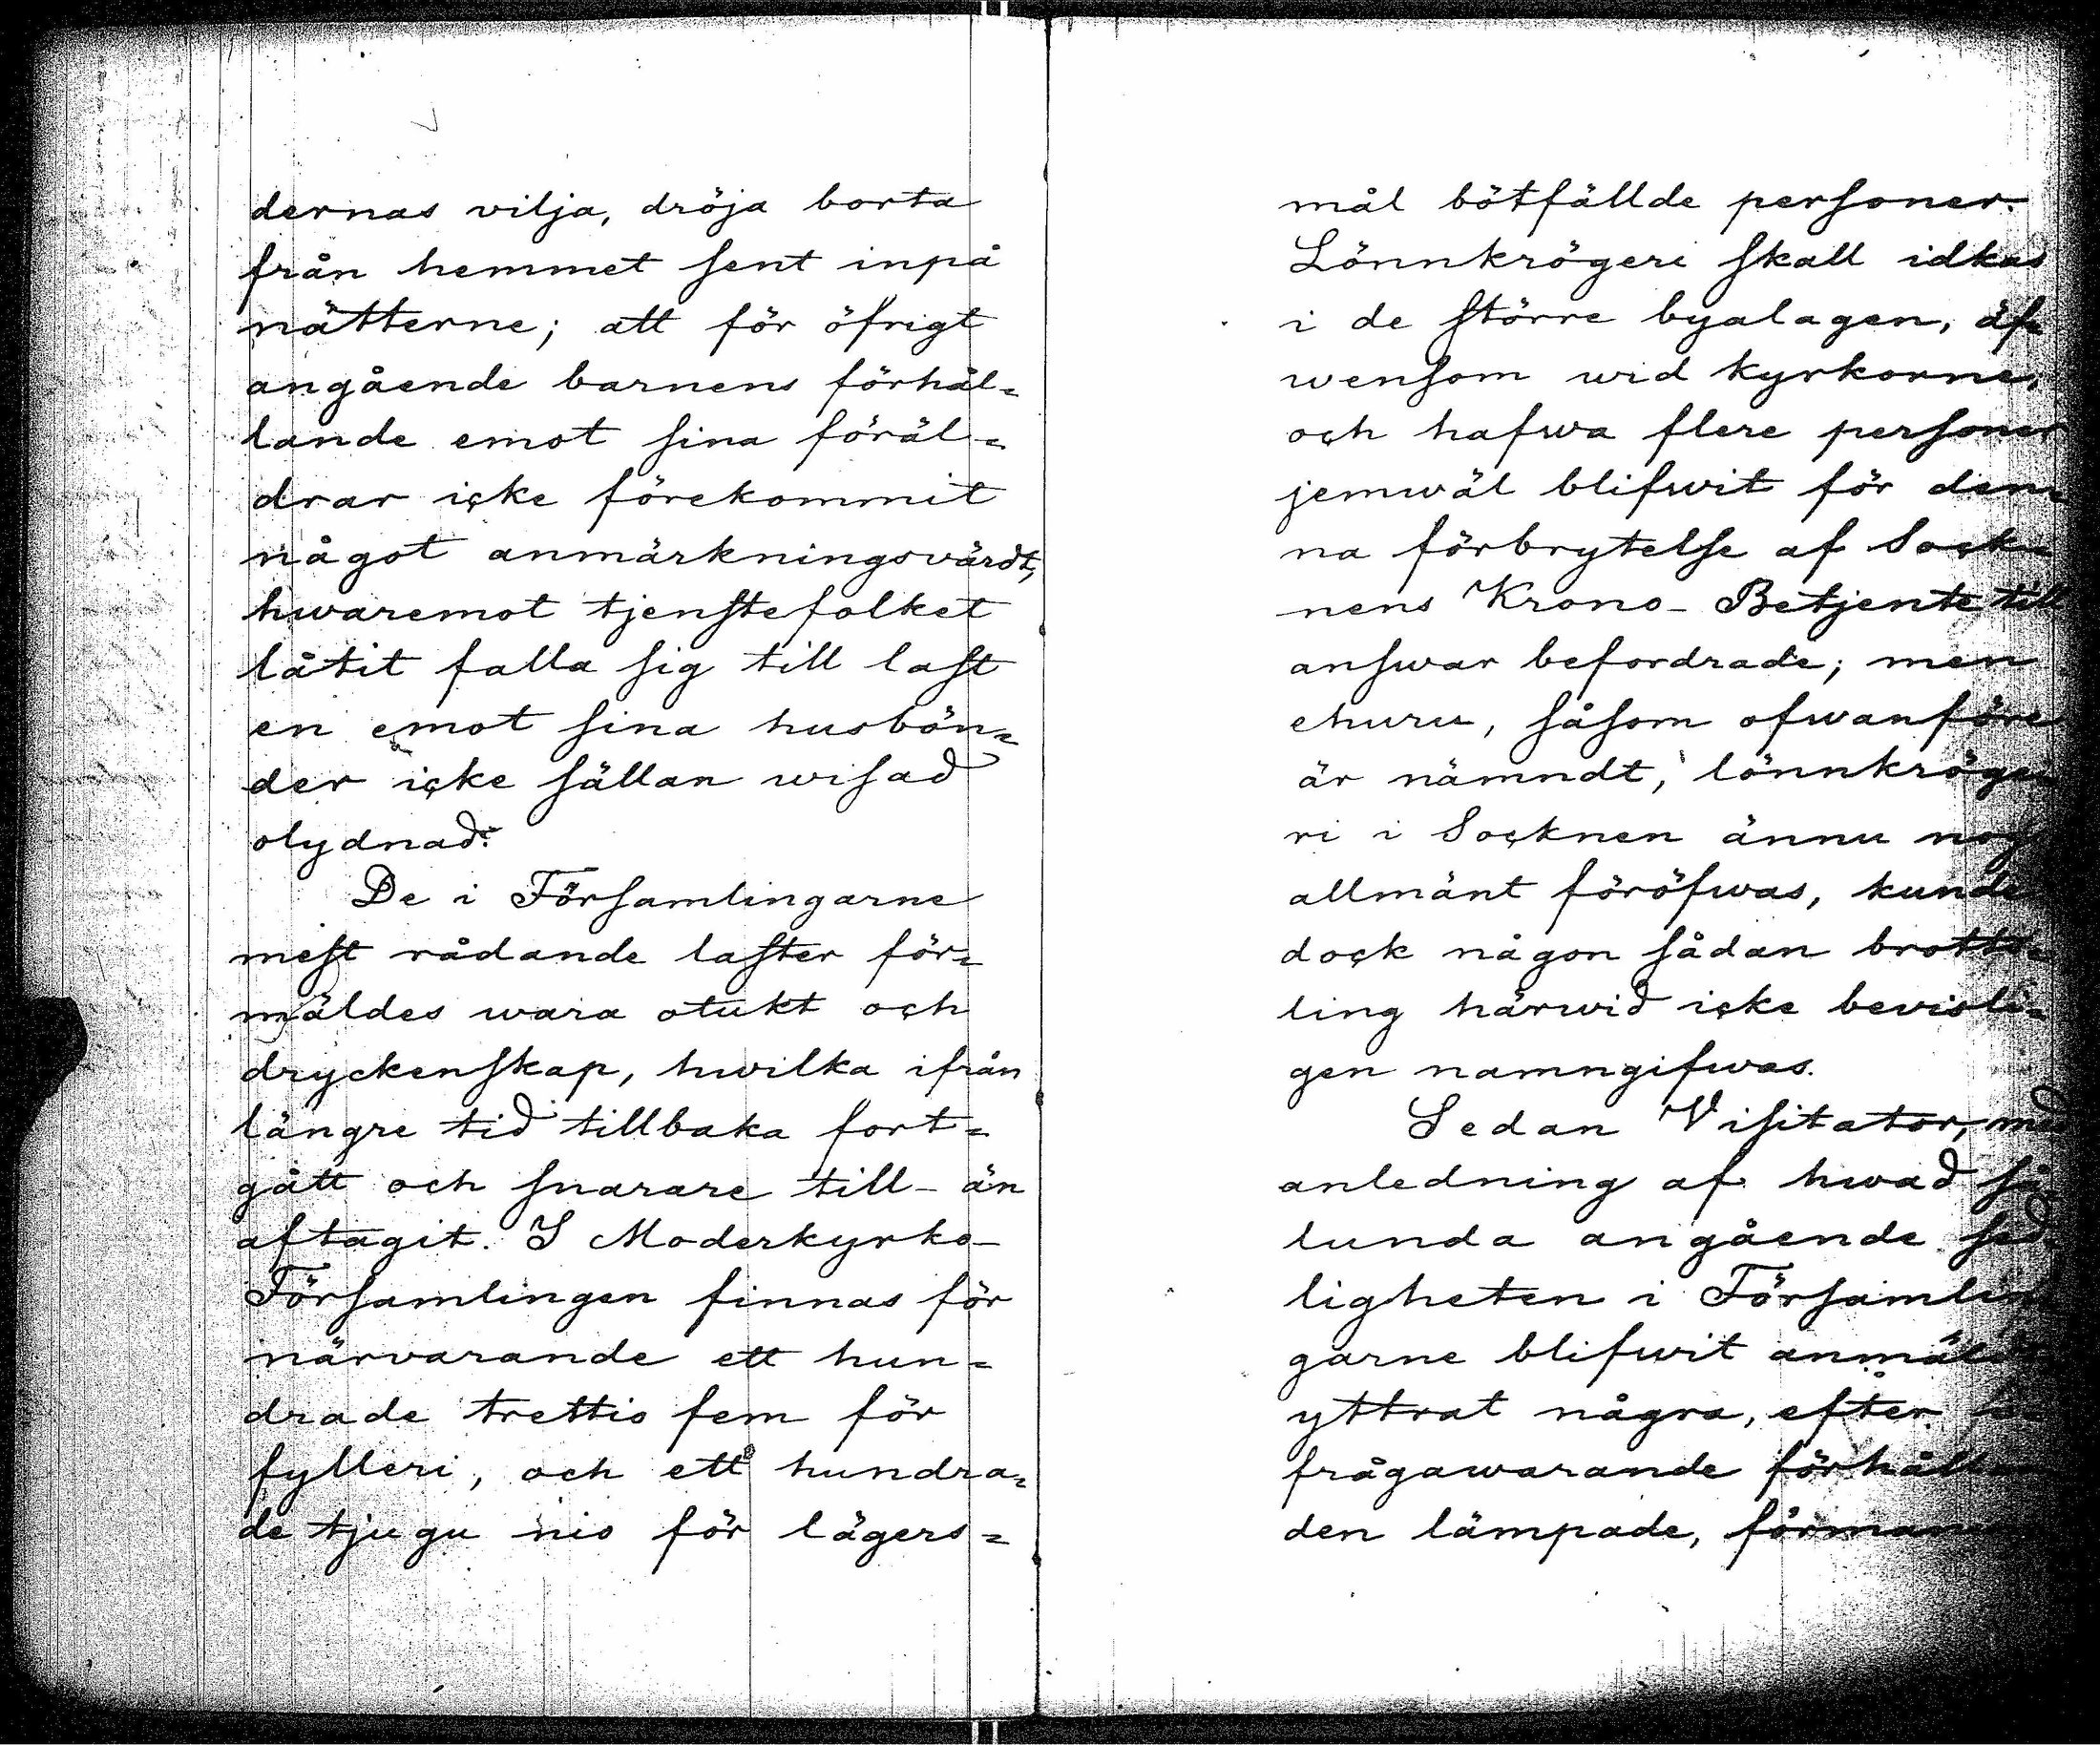 dernas vilja, dröja borta
från hemmet sent inpå
nätterne; att för öfrigt
angående barnens förhål=
lande emot sina föräl=
drar icke förekommit
något anmärkningsvärdt,
hwaremot tjenstefolket
låtit falla sig till last
en emot sina husbön=
der icke sällan wisad
olydnad.
De i Församlingarne
mest rådande laster för=
mäldes wara otukt och
dryckenskap, hwilka ifrån
längre tid tillbaka fort=
gått och snarare till- än
aftagit. I Moderkyrko-
Församlingen finnas för
närvarande ett hun=
drade trettio fem för
fylleri, och ett hundra=
de tjugu nio för lägers=
mål bötfällde personer.
Lönnkrögeri skall idkas
i de större byalagen, äf=
wensom wid kyrkorne,
och hafwa flere personer
jemwäl blifwit för den=
na förbrytelse af Sock=
nens Krono-Betjente till
answar befordrade; men
ehuru, såsom ofwanföre
är nämndt, lönnkröge=
ri i Socknen ännu nog
allmänt föröfwas, kunde
dock någon sådan brotts=
ling härwid icke bevisli=
gen namngifwas.
Sedan Visitator, med
anledning af hwad så=
lunda angående sed=
ligheten i Församlin=
garne blifwit anmäldt
yttrat några, efter
frågawarande förhållan=
den lämpade,